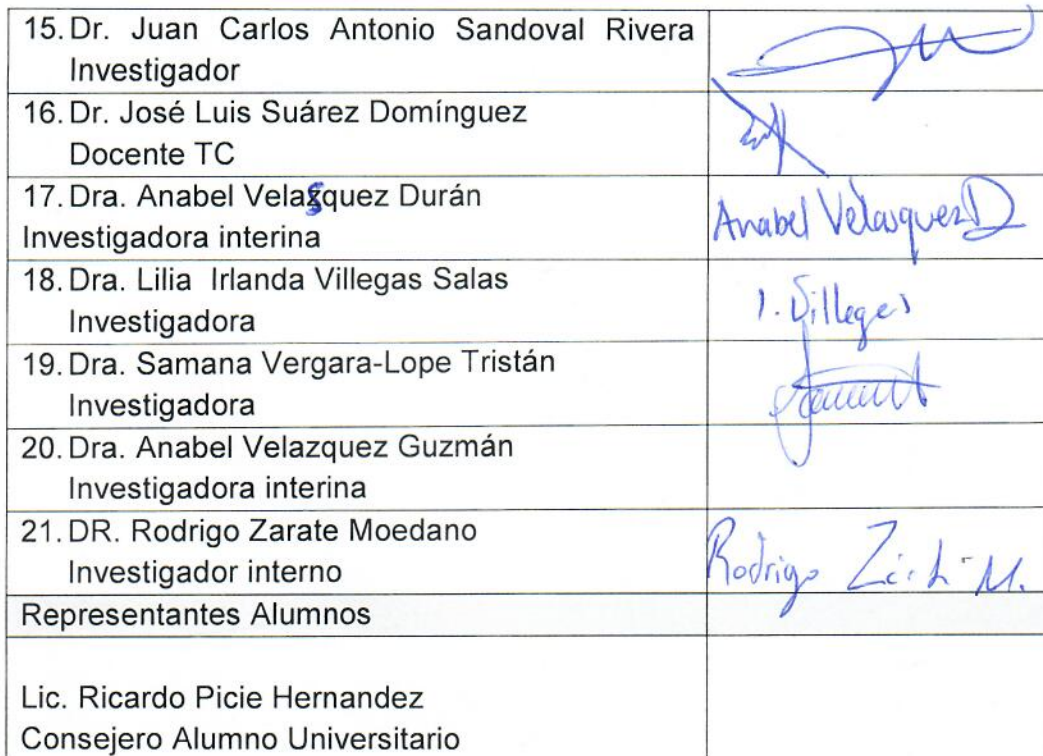 15. Dr. Juan Carlos Antonio Sandoval Rivera
Investigador
16. Dr. José Luis Suárez Domínguez
Docente TC
17. Dra. Anabel Velasquez Durán
Investigadora interina
Anabel Velasquez D
18. Dra. Lilia Irlanda Villegas Salas
Investigadora
I. Villegas
19. Dra. Samana Vergara-Lope Tristán
Investigadora
20. Dra. Anabel Velazquez Guzmán
Investigadora interina
21. DR. Rodrigo Zarate Moedano
Investigador interno
Rodrigo M.
Representantes Alumnos
Lic. Ricardo Picie Hernandez
Consejero Alumno Universitario